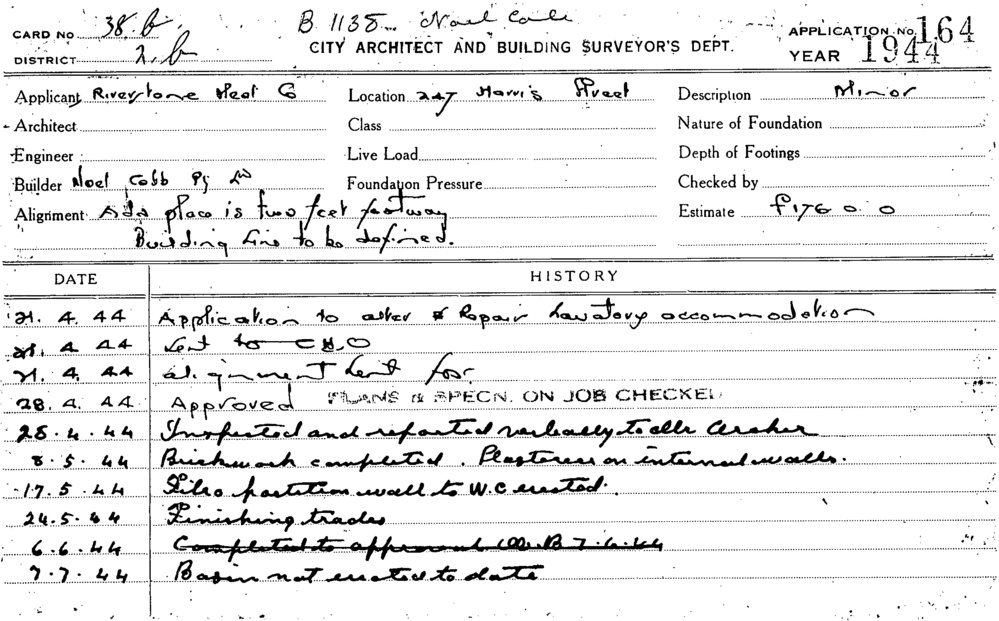 CARD No 38.b B 1138 Noel Cobb APPLICATION No. 164
DISTRICT 2.b CITY ARCHITECT AND BUILDING SURVEYOR'S DEPT. YEAR 1944
Applicant Riverstone Meat Co Location 247 Harris Street Description Minor
Architect Class Nature of Foundation
Engineer Live Load Depth of Footings
Builder Noel Cobb Py Ld Foundation Pressure Checked by
Alignment Ada place is two feet footway Estimate £176 0. 0
Building line to be defined.
DATE HISTORY
21. 4. 44 Application to alter & Repair Lavatory accommodation
21. 4 44 Sent to C H O
21. 4. 44 alignment sent for
28. 4. 44 Approved PLANS & SPECN. ON JOB CHECKED
28. 4. 44 Inspected and reported verbally to Mr Archer
8. 5. 44 Brickwork completed. Plasterers on internal walls.
17. 5. 44 Fibro partition wall to W.C erected.
24. 5. 44 Finishing trades
6. 6. 44 Completed to approval 7.6.44
7. 7. 44 Basin not erected to date